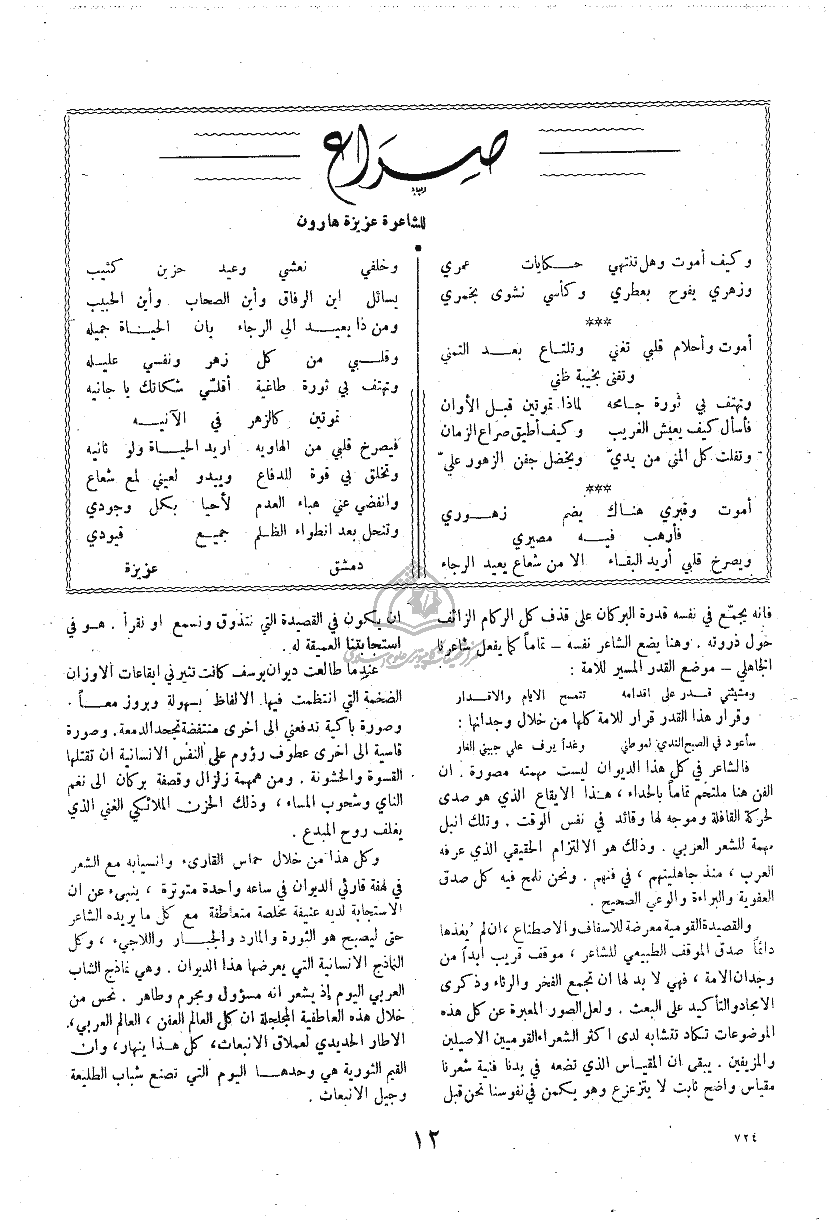 صراع
للشاعرة عزيزة هارون
وكيف أموت وهل تنتهي حكايات عمري
وزهري يفوح بعطري وكأسي نشوى بخمري
***
أموت وأحلام قلبي تغني وتلتاع بعد التمني
وتفنى بخيبة ظني
وتهتف بي ثورة جامحه لماذا تموتين قبل الأوان
فأسأل كيف يعيش الغريب وكيف أطيق صراع الزمان
وتفلت كل المنى من يديّ ويخضل جفن الزهور عليّ
***
أموت وقبري هناك يضم زهوري
فأرهب فيه مصيري
ويصرخ قلبي أريد البقاء الا من شعاع يعيد الرجاء
وخلفي نعشي وعيد حزين كئيب
يسائل اين الرفاق وأين الصحاب وأين الحبيب
ومن ذا يعيد الى الرجاء بان الحياة جميله
وقلبي من كل زهر ونفسي عليله
وتهتف بي ثورة طاغية أقلّي شكاتك يا جانيه
تموتين كالزهر في الآنيه
فيصرخ قلبي من الهاويه اريد الحياة ولو ثانيه
وتخلق بي قوة للدفاع ويبدو لعيني لمع شعاع
وانفضي عني هباء العدم لأحيا بكل وجودي
وتنحل بعد انطواء الظلم جميع قيودي
دمشق عزيزة
فانه يجمّع في نفسه قدرة البركان على قذف كل الركام الزائف
حول ذروته . وهنا يضع الشاعر نفسه – تماماً كما يفعل شاعرنا
الجاهلي – موضع القدر المسير للامة :
ومشيئتي قدر على اقدامه تتمسح الايام والاقدار
وقرار هذا القدر قرار للامة كلها من خلال وجدانها :
سأعود في الصبح الندي لموطني وغداً يرف على جبيني الغار
فالشاعر في كل هذا الديوان ليست مهمته مصورة . ان
الفن هنا ملتحم تماماً بالحداء ، هذا الايقاع الذي هو صدى
لحركة القافلة وموجه لها وقائد في نفس الوقت . وتلك انبل
مهمة للشعر العربي . وذلك هو الالتزام الحقيقي الذي عرفه
العرب ، منذ جاهليتهم ، في فنهم . ونحن نلمح فيه كل صدق
العفوية والبراءة والوعي الصحيح .
والقصيدة القومية معرضة للاسفاف والاصطناع ، ان لم يُغذها
دائماً صدق الموقف الطبيعي للشاعر ، موقف قريب ابداً من
وجدان الامة ، فهي لا بد لها ان تجمع الفخر والرثاء وذكرى
الامجاد والتأكيد على البعث . ولعل الصور المعبرة عن كل هذه
الموضوعات تكاد تتشابه لدى اكثر الشعراء القوميين الاصيلين
والمزيفين . يبقى ان المقياس الذي تضعه في يدنا فنية شعرنا
مقياس واضح ثابت لا يتزعزع وهو يكمن في نفوسنا نحن قبل
ان يكون في القصيدة التي نتذوق ونسمع او نقرأ . هو في
استجابتنا العميقة له .
عندما طالعت ديوان يوسف كانت تثيرني ايقاعات الاوزان
الضخمة التي انتظمت فيها الالفاظ بسهولة وبروز معاً .
وصورة باكية تدفعني الى اخرى منتفضة تجحد الدمعة . وصورة
قاسية الى اخرى عطوف رؤوم على النفس الانسانية ان تقتلها
القسوة والخشونة . ومن همهمة زلزال وقصفة بركان الى نغم
الناي وشحوب المساء ، وذلك الحزن الملائكي الغني الذي
يغلف روح المبدع .
وكل هذا من خلال حماس القارىء وانسيابه مع الشعر
في لهفة قارئي الديوان في ساعه واحدة متوترة ، ينبىء عن ان
الاستجابة لديه عنيفة مخلصة متعاطفة مع كل ما يريده الشاعر
حتى ليصبح هو الثورة والمارد والجبار واللاجىء ، وكل
النماذج الانسانية التي يعرضها هذا الديوان . وهي نماذج الشاب
العربي اليوم إذ يشعر انه مسؤول ومجرم وطاهر . نحس من
خلال هذه العاطفية المجلجلة ان كل العالم العفن ، العالم العربي ،
الاطار الحديدي لعملاق الانبعاث ، كل هذا ينهار ، وان
القيم الثورية هي وحدها اليوم التي تصنع شباب الطليعة
وجيل الانبعاث .
١٢
٧٢٤